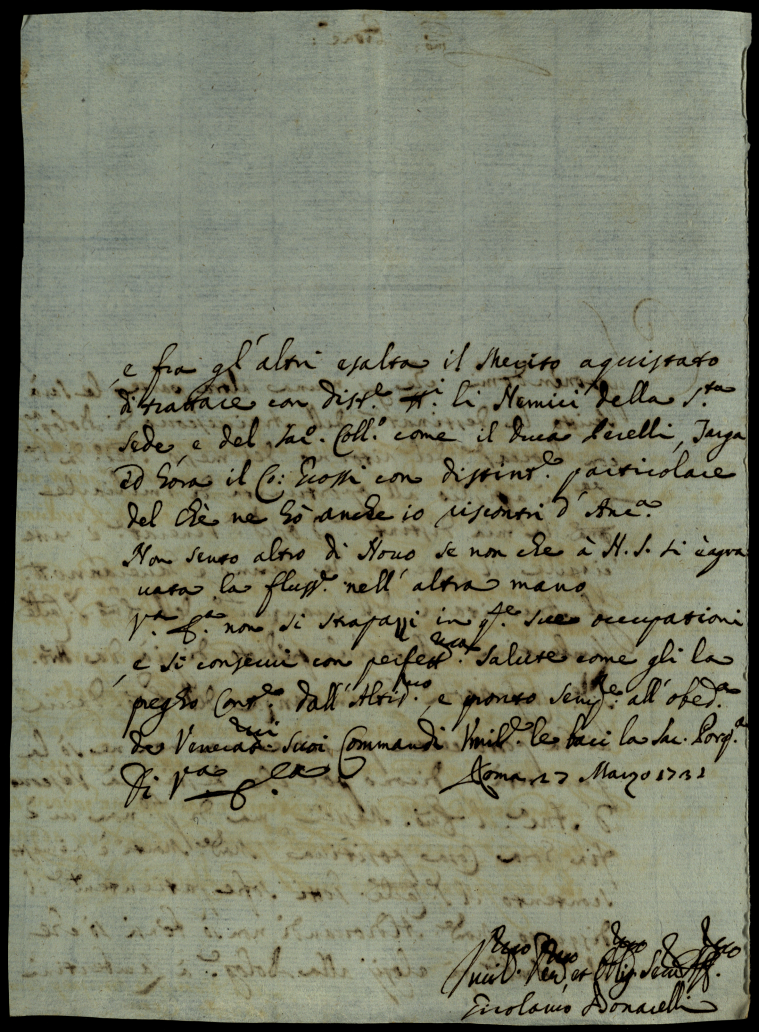 e fra gl'altri esalta il Merito aquistato
di trattare con dist.e li Nemici della S.ta
Sede, e del Sac.o Coll.o come il Duca Pirelli,
ed hora il Co: con distint.e particolare
del chè ne hò anche io riscontri d'Anc.a
Non sento altro di Novo se non che à N. S. si è agra
vata la fluss.e nell'altra mano
V.a E.a non si strapazzi in q.te sue occupationi
e si conservi con perfett.ma salute come gli la
prego Cont.e dall'Altis.mo, e pronto semp.e all'obed.a
de Venerat.mi Suoi Commandi Umilm.e le baci la Sac. Porp.a
Di V.a E.a Roma 27 Marzo 1731
Umil.mo Dev.mo et Oblig.mo Ser.
Girolamo Donacelli